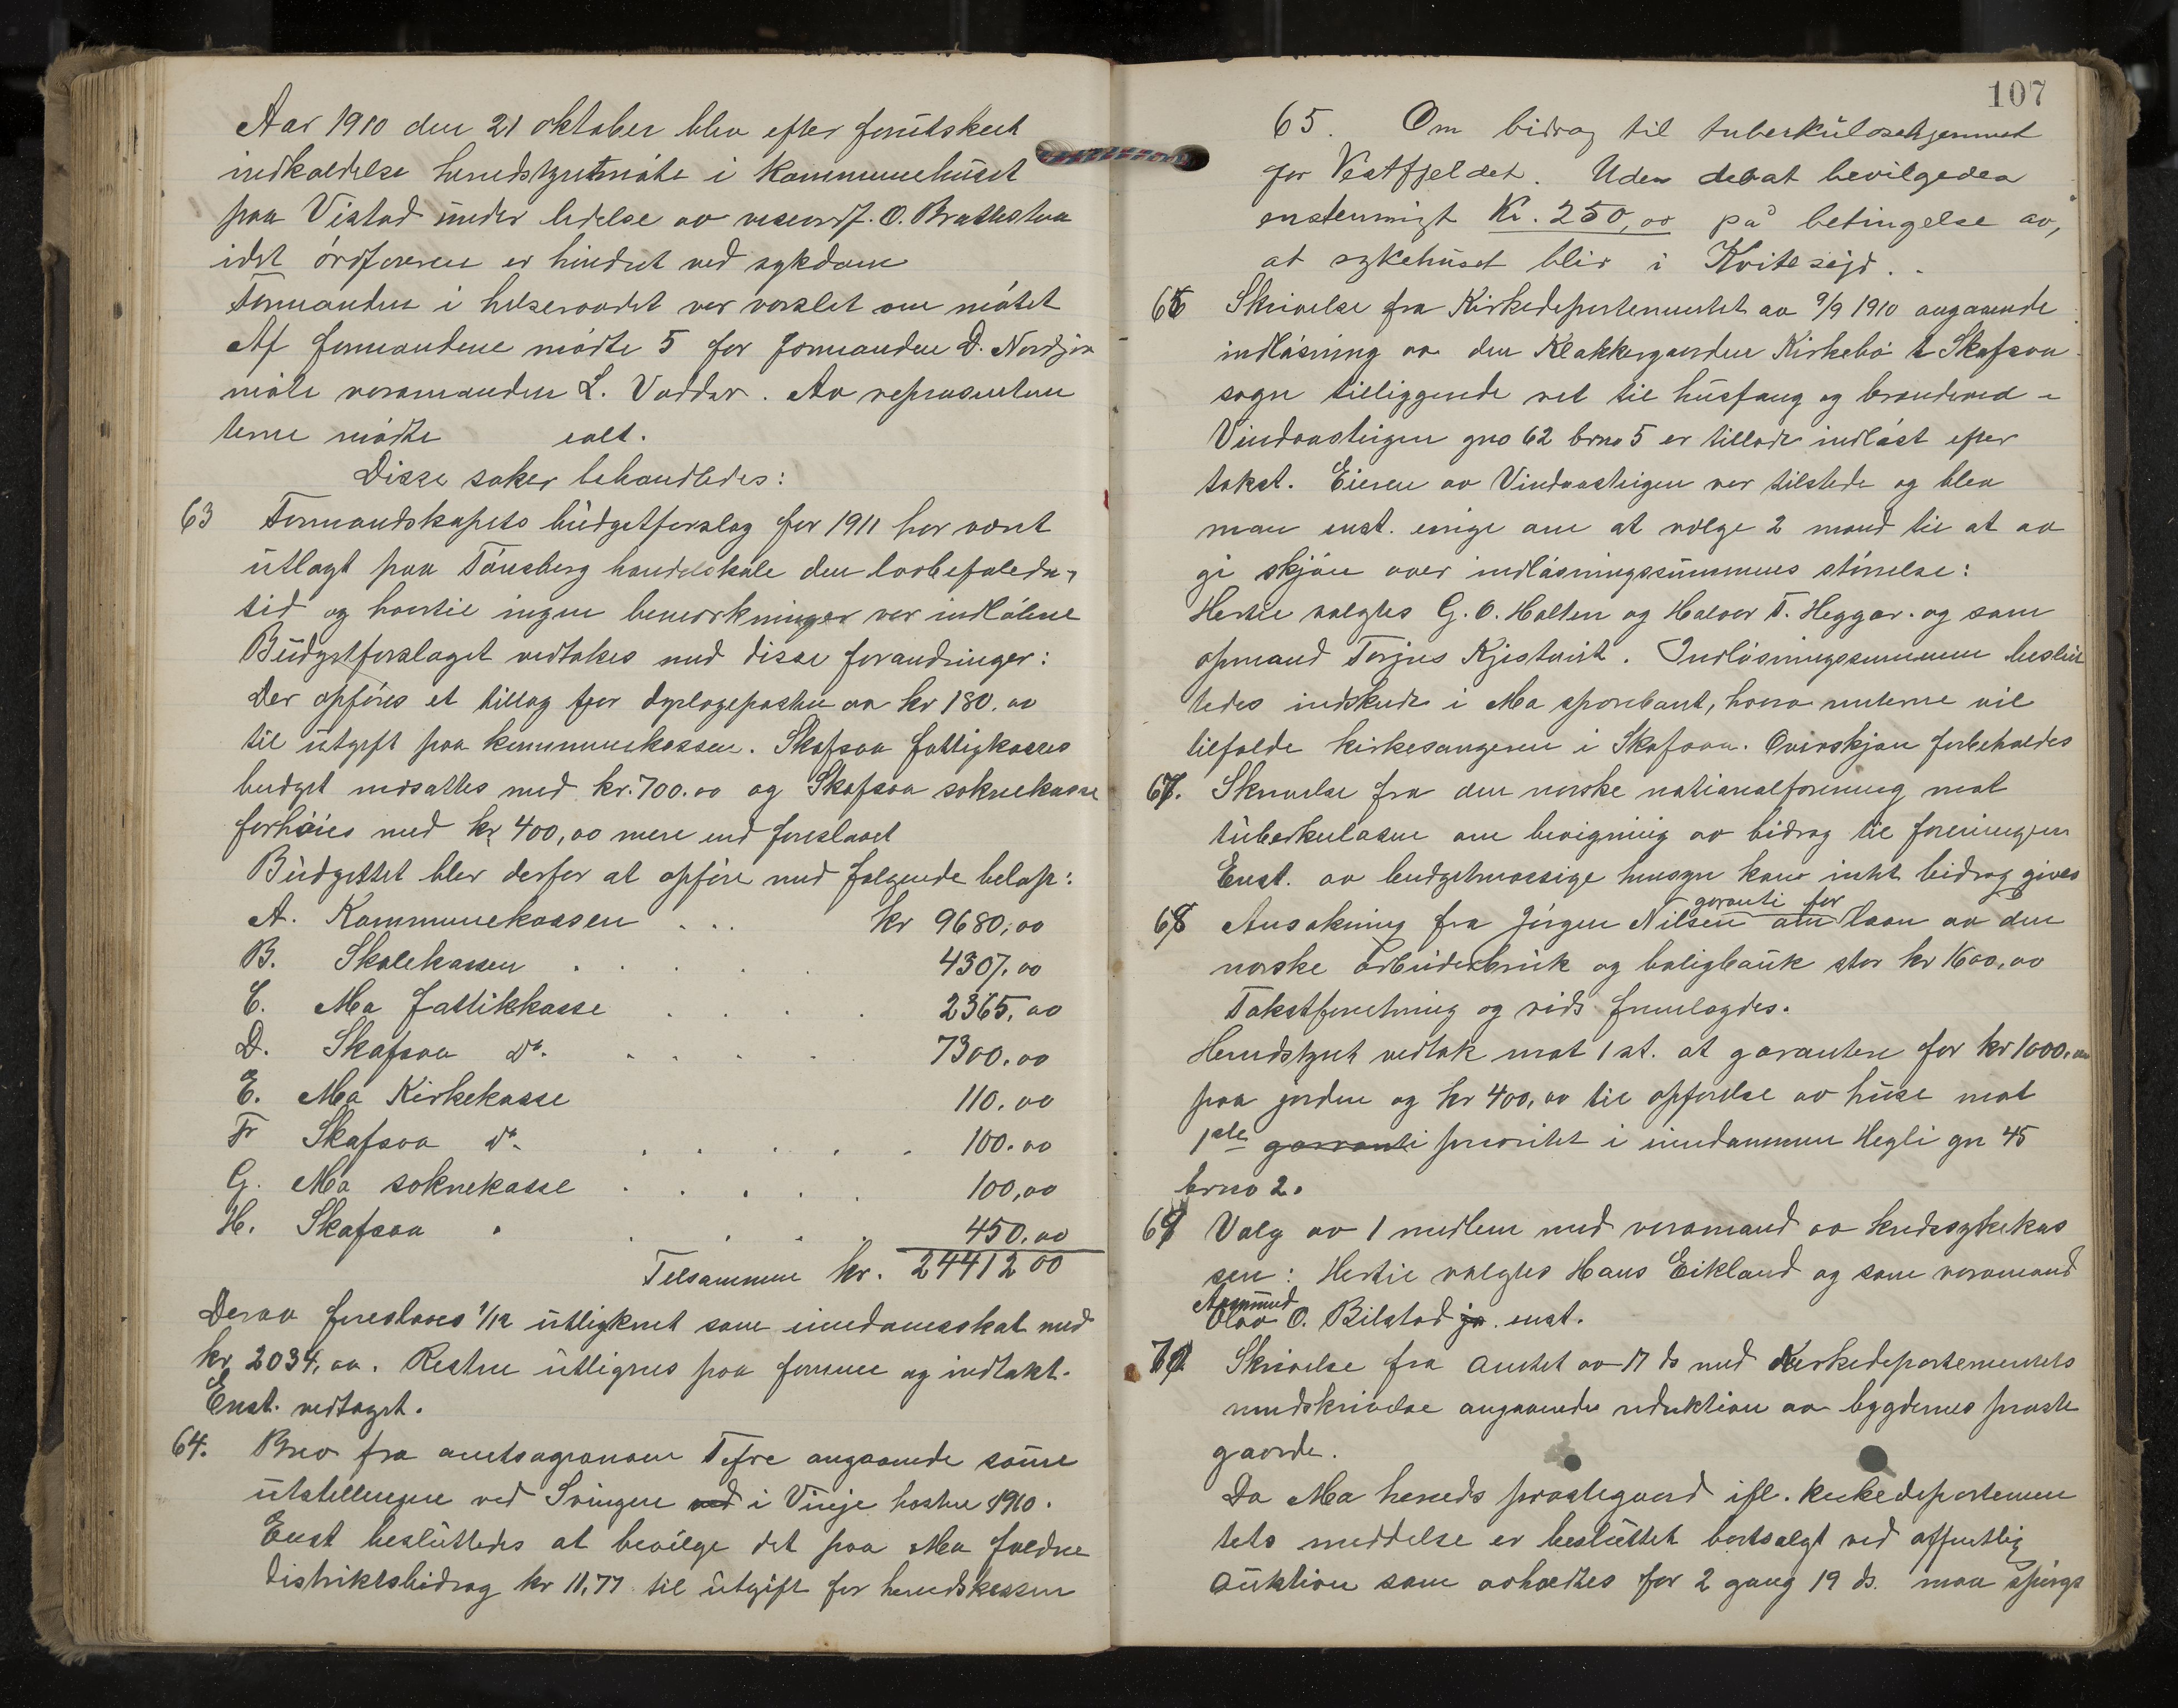 Aar 1910 den 21 oktober blev efter forutskeet
indkaldelse heredstyretsmöte i Kommunehuset
paa Vistad under ledelse av viseordf. O. Brattestaa
idet ordföreren er hindret ved sykdom
Formanden i helseraadet var varslet om mötet
Af formændene mödte 5 for formanden D. Nordjor
möte varamanden L. Vaddar. Av repræsentan
terne mödte ialt.
Disse saker behandledes:
63 Formandskapets budgetforslag for 1911 har været
utlagt paa Tönsberg handelskole den lovbefalede
tid og hvortil ingen bemerkninger var indlöbne
Budgetforslaget vedtakes med disse forandringer:
Der opföres et tillæg for dyrlægeposten av kr 180.00
til utgift paa kommunekassen. Skafsaa fattigkasses
budget nedsattes med kr. 700.00 og Skafsaa soknekasse
forhöies med kr 400,00 mere end foreslaaet
Budgettet blev derfor at opföre med følgende beløp:
A. Kommunekassen . . . kr 9680,00
B. Skolekassen . . . . 4307.00
C. Mo fattikkasse . . . . 2365,00
D. Skafsaa do. . . . . 7300.00
E. Mo Kirkekasse 110.00
F Skafsaa do. . . . . . 100.00
G. Mo soknekasse . . . . . 100,00
H. Skafsaa " . . . . 450,00
Tilsammen kr. 24412 00
Derav foreslaaes 1/12 utlignet som eiendomsskat med
kr 2034,00. Resten utlignes paa formue og indtækt.
Enst. vedtaget.
64. Brev fra amtsagronom Tefre angaaende
utstillingen ved Svingen ved i Vinje hösten 1910.
Enst besluttedes at bevilge det paa Mo faldne
distriktsbidrag kr 11,77 til utgift for heredskassen
107
65. Om bidrag til tuberkulosehjemmet
for Vestfjeldet. Uden debat bevilgedes
enstemmigt Kr. 250,00 på betingelse av,
at sykehuset blir i Kviteseid.
66 Skrivelse fra Kirkedepartementet av 9/9 1910 angaaende
indlösning av den Klokkergaarden Kirkebö i Skafsaa
sogn tilliggende ret til husfang og brændeved i
Vindaasteigen gno 62 brno 5 er tillatt indlöst efter
takst. Eieren av Vindaasteigen var tilstede og blev
man enst. enige om at vælge 2 mænd til at av
gi skjön over indlösningssummens störrelse:
Hertil valgtes G. O. Holten og Halvor T. Heggar. og som
opmand Torjus Kjestveit. Indlösningssummen beslut
tedes indskudt i Mo sparebank, hvorav renterne vil
tilfalde kirkesangeren i Skafsaa. Overskjön forbeholdes
67. Skrivelse fra den norske nationalforening mot
tuberkulosen om bevigning av bidrag til foreningen
Enst. av budgetmæssige hensyn kan intet bidrag gives
68 Ansökning fra Jörgen Nilsen om garanti for laan av den
norske arbeiderbruk og boligbank stor kr 1600,00
Takstforretning og rids fremlagdes.
Heredstyret vedtok mot 1 st. at garantere for kr 1000,00
paa jorden og kr 400,00 til opförelse av huse mot
1ste garranti prioritet i eiendommen Hegli gn 45
brno 2.
69 Valg av 1 medlem med varamand av kredssykekas
sen: Hertil valgtes Hans Eikland og som varamand
Aamund
Olav O. Bilstad jr. enst.
70 Skrivelse fra amtet av 17 ds med Kirkedepartementets
rundskrivelse angaaende reduktion av bygdernes præste
gaarde.
Da Mo hereds præstegaard ifl. kirkedepartemen
tets meddelse er besluttet bortsolgt ved offentlig
auktion som avholdtes for 2 gang 19 ds. maa spörgs